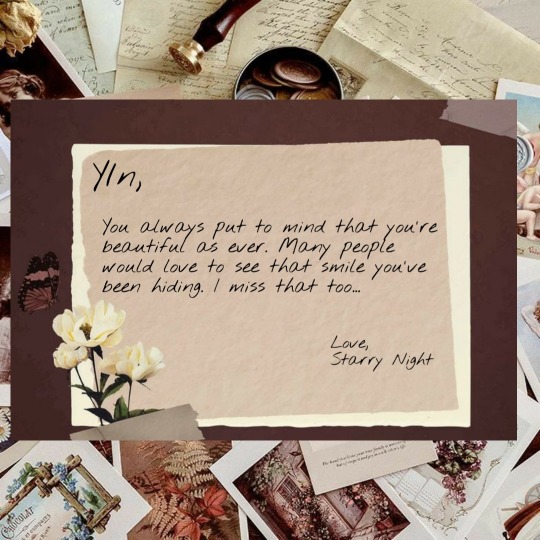 YIn,
You always put to mind that you're
beautiful as ever. Many people
would love to see that smile you've
been hiding. I miss that too...
Love,
Starry Night
CHOCOLAT